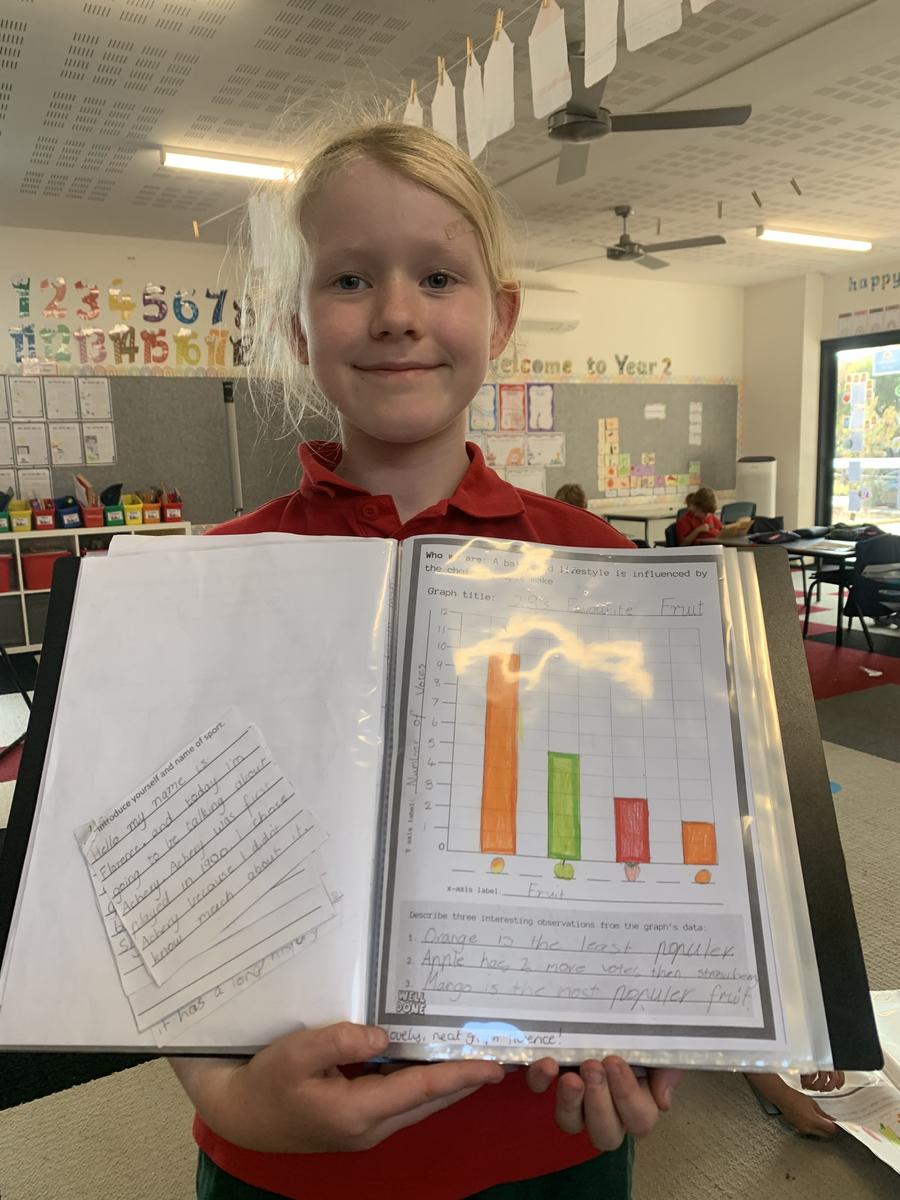 1 2 3 4 5 6 7
11 12 13 14 15 16 17
happy
Welcome to Year 2
Introduce yourself and name of sport.
Hello my name is
Florence, and today I'm
going to be talking about
Achery. Achery was first
played in 1900 I chose
Achery because I didn't
know much about it.
it has a long history
Who we are: A lifestyle is influenced by
the
Graph title: 2.9's Favourite Fruit
12
11
10
9
8
7
6
5
4
3
2
1
0
Y axis label: Number of Votes
x-axis label: Fruit
Describe three interesting observations from the graph's data:
1. Orange is the least populer
2. Apple has 2 more votes then strawberry
3. Mango is the most populer fruit
WELL
DONE
lovely, neat